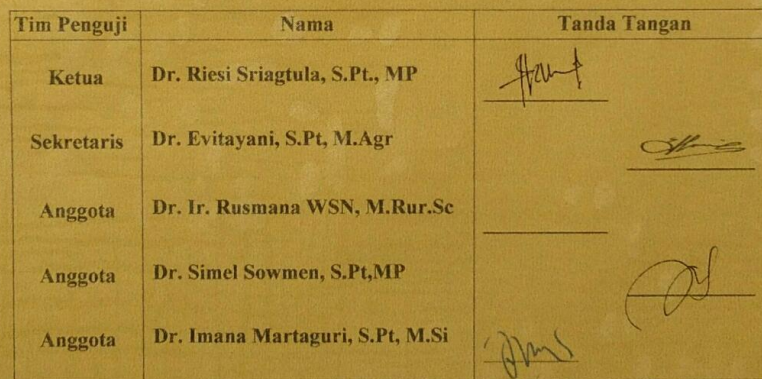 Tim Penguji Nama Tanda Tangan
Ketua Dr. Riesi Sriagtula, S.Pt., MP
Sekretaris Dr. Evitayani, S.Pt, M.Agr
Anggota Dr. Ir. Rusmana WSN, M.Rur.Sc
Anggota Dr. Simel Sowmen, S.Pt,MP
Anggota Dr. Imana Martaguri, S.Pt, M.Si